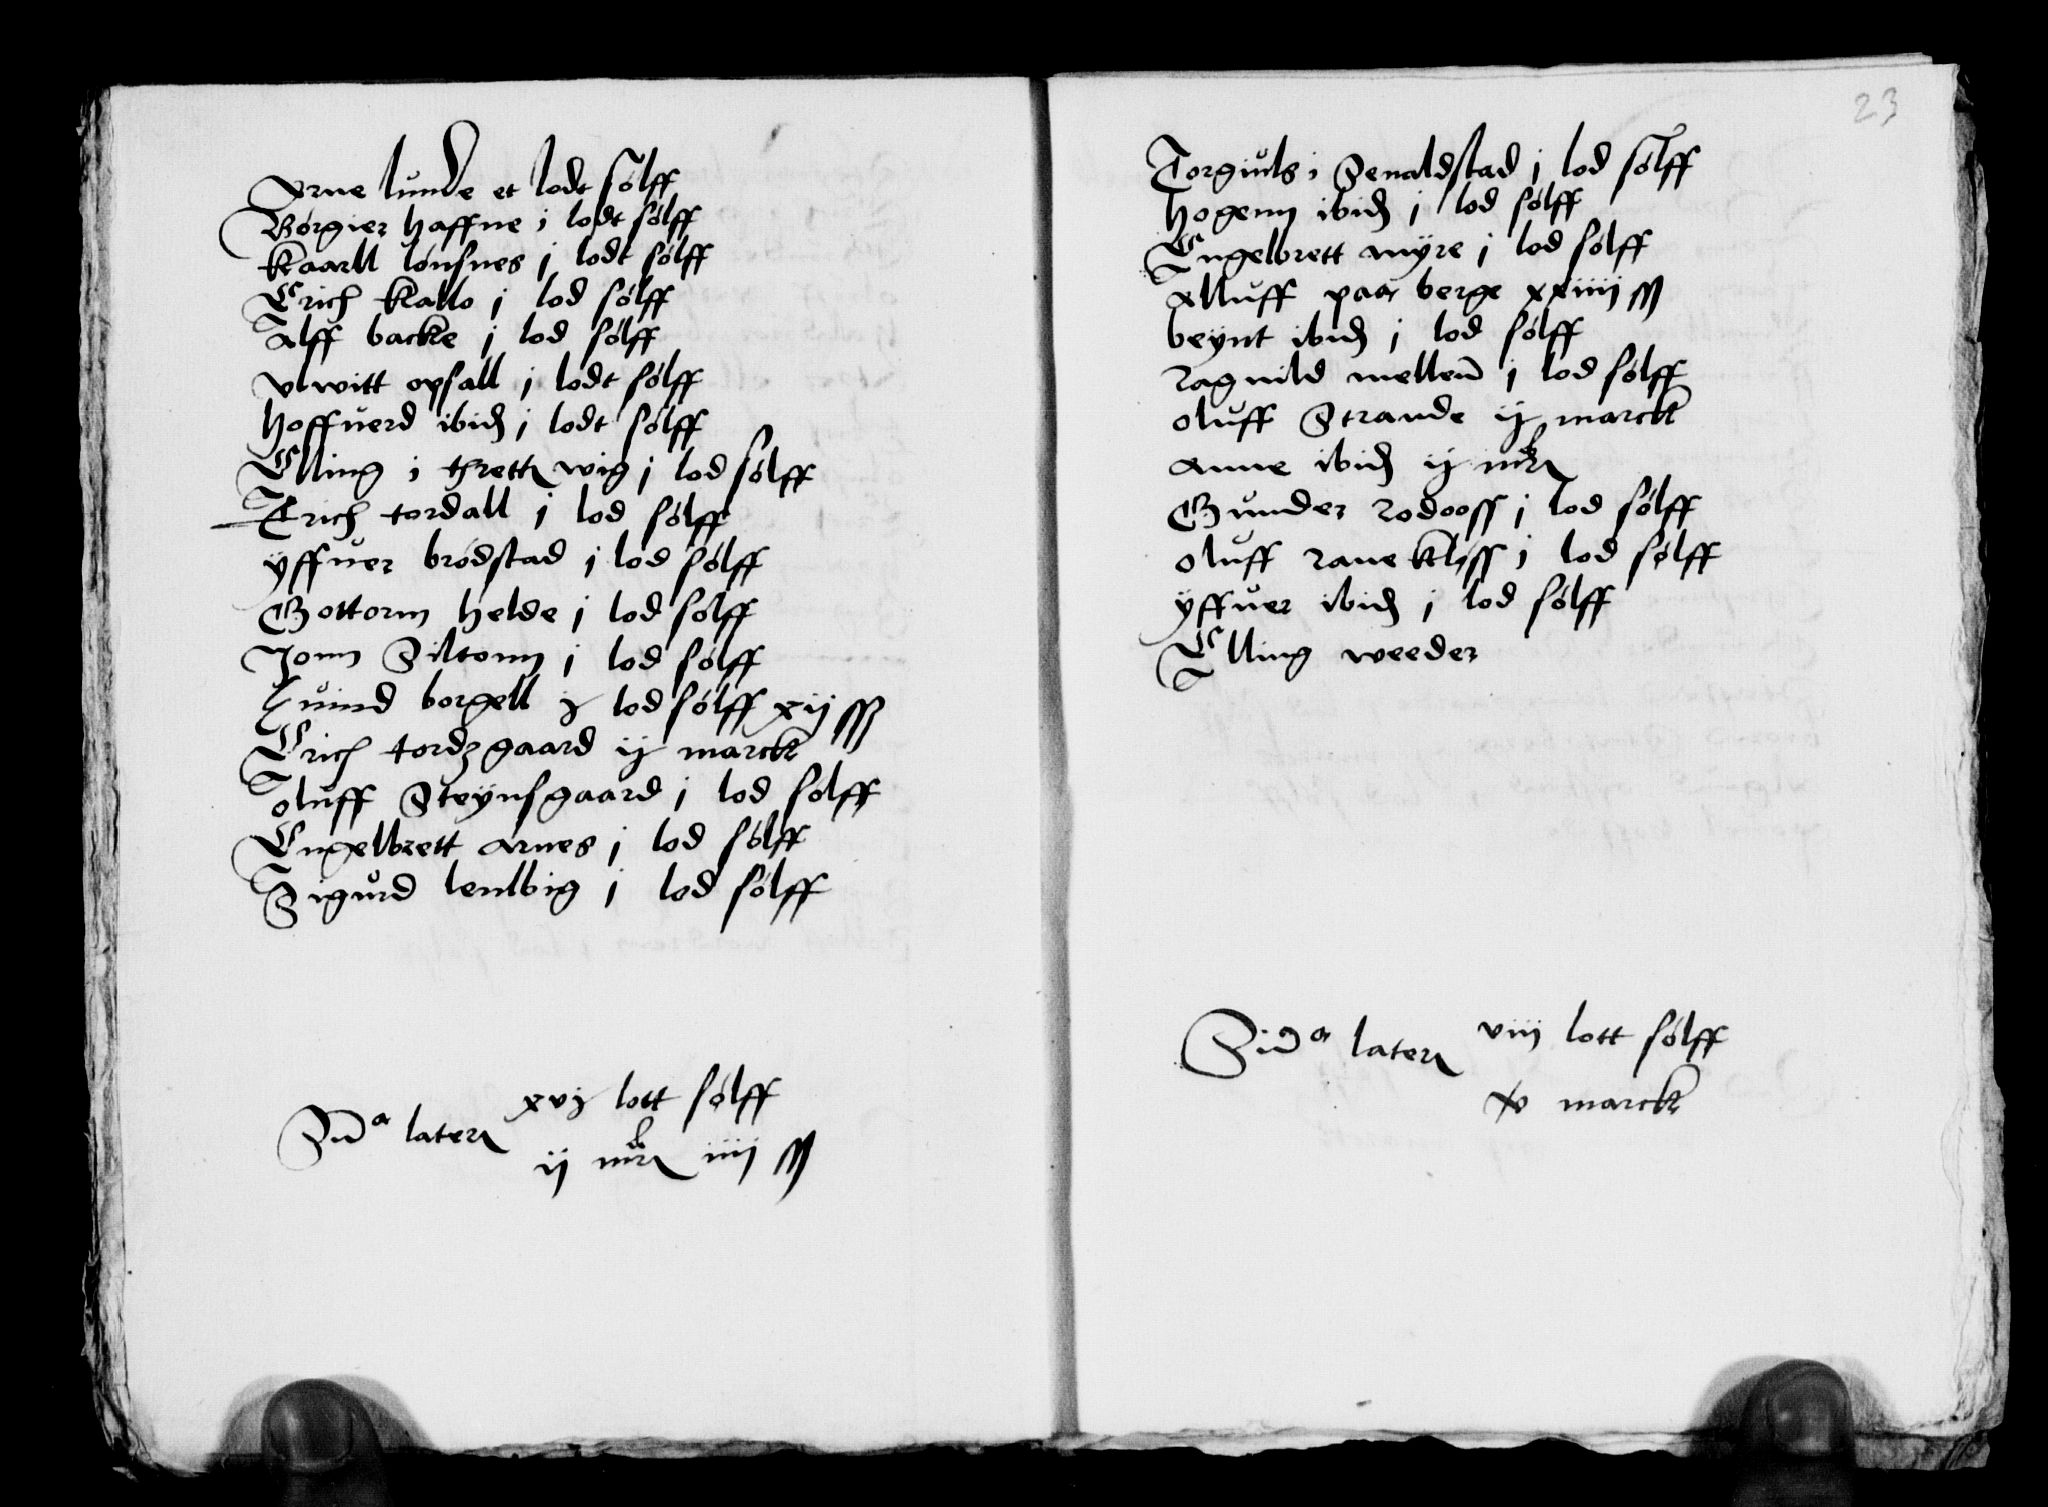 Arne lunde et lodt sølff
Børgier haffne i lodt sølff
Kaarll lønsnes j lodt sølff
Erich kallo j lod sølff
Alff backe j lod sølff
vlwitt opsall j lodt sølff
Hoffuerd ibid j lodt sølff
Elling i threttwig j lod sølff
Erich tordall j lod sølff
ÿffuer brødstad j lod sølff
Gottorm helde j lod sølff
Jonn Siltonn j lod sølff
borgell lod sølff xij ss
Erich tordzgaard ij marck
oluff Steÿnsgaard j lod sølff
Engelbrett arnes j lod sølff
Sigurd lenlbig j lod sølff
later xvj lott sølff
ij mrk iiij ss
23
Torgiuls i Senaldstad j lod sølff
Hogenn ibid j lod sølff
Engelbrett mÿre j lod sølff
Alluff paa berge xxiiij ss
beÿnt ibid j lod sølff
Ragnild mellenn j lod sølff
oluff Strande ij marck
Anne ibid ij mrk
Gunder rodooss j lod sølff
oluff rane kløss j lod sølff
ÿffuer ibid j lod sølff
Elling weeder
later viij lott sølff
v marck